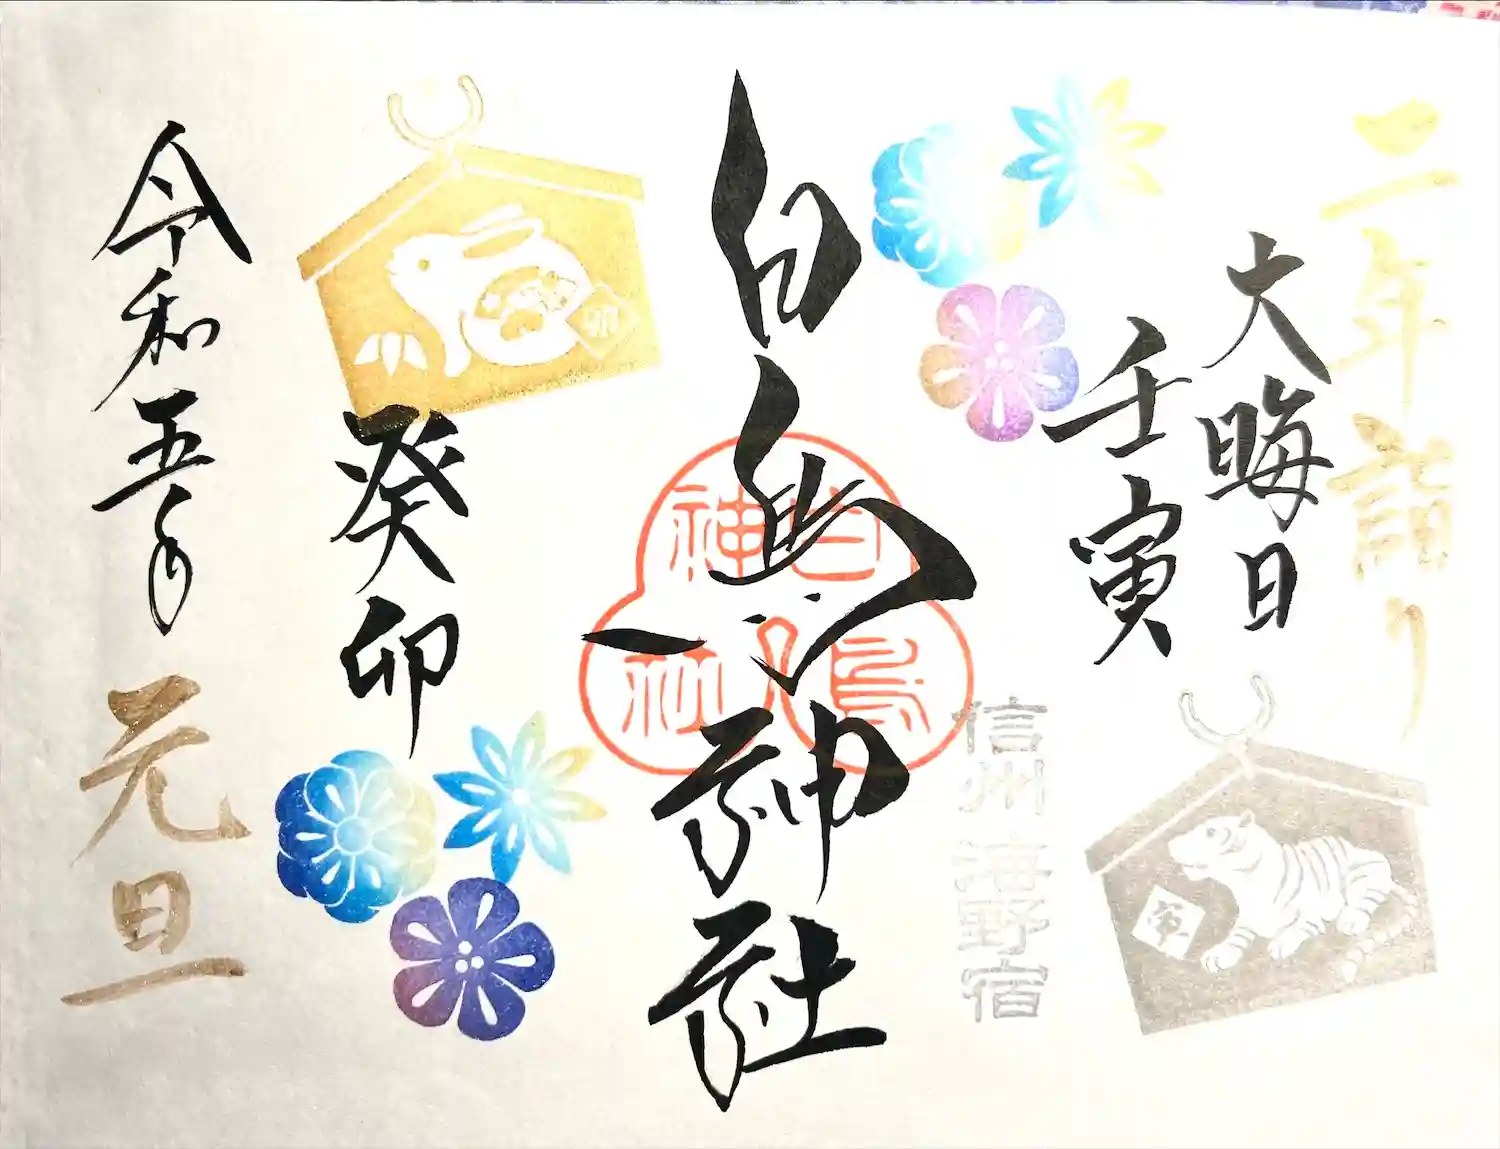 二年詣り
大晦日
壬寅
寅
信州 海野宿
白鳥神社
白鳥神社
癸卯
卯
令和五年
元旦